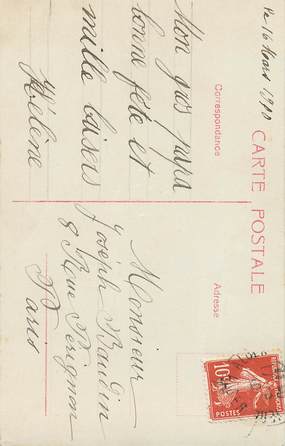 Le 16 Mars 1910
CARTE POSTALE
Correspondance
Adresse
Mon gros papa
bonne fête et
mille baisers
Hélène
Monsieur
Joseph Baudin
8 Rue Pérignon
Paris
10
POSTES